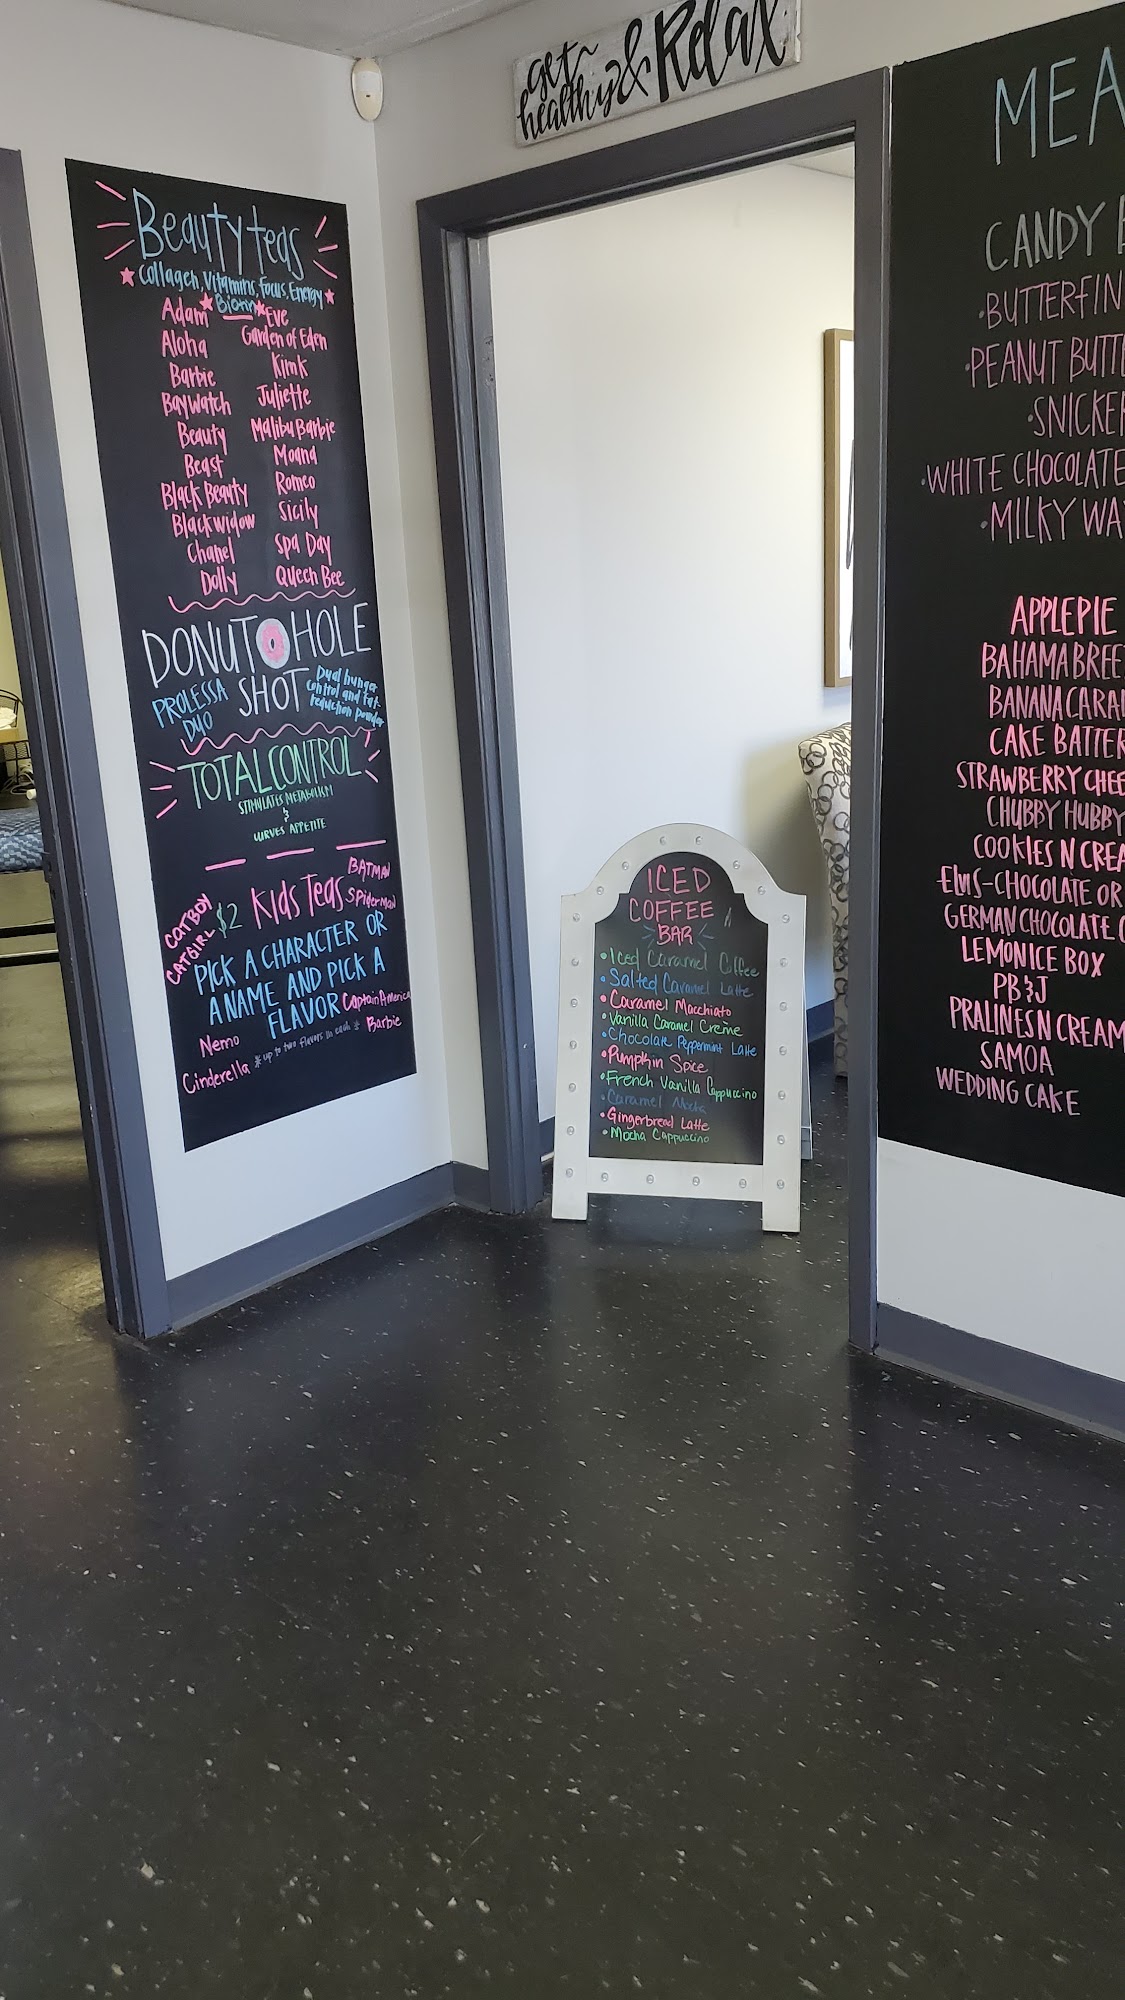 get
healthy & Relax
Beauty teas
Collagen, Vitamins, Focus, Energy
Biotin
Adam Eve
Aloha Garden of Eden
Barbie Kim K
Baywatch Juliette
Beauty Malibu Barbie
Beast Moana
Black Beauty Romeo
Black Widow Sicily
Chanel Spa Day
Dolly Queen Bee
DONUT HOLE
SHOT
PROLESSA
DUO
Dual hunger
control and fat-
reduction powder
TOTAL CONTROL
STIMULATES METABOLISM
&
CURVES APPETITE
CATBOY
CATGIRL
$2 Kids Teas
BATMAN
Spiderman
PICK A CHARACTER OR
A NAME AND PICK A
FLAVOR
Captain America
Nemo
* up to two flavors in each *
Barbie
Cinderella
ICED
COFFEE
BAR
• Iced Caramel Coffee
• Salted Caramel Latte
• Caramel Macchiato
• Vanilla Caramel Creme
• Chocolate Peppermint Latte
• Pumpkin Spice
• French Vanilla Cappuccino
• Caramel Mocha
• Gingerbread Latte
• Mocha Cappuccino
MEA
CANDY
• BUTTERFIN
• PEANUT BUTT
• SNICKER
• WHITE CHOCOLATE
• MILKY WA
APPLE PIE
BAHAMA BREE
BANANA CARA
CAKE BATTER
STRAWBERRY CHEE
CHUBBY HUBBY
COOKIES N CREA
ELVIS-CHOCOLATE OR
GERMAN CHOCOLATE
LEMON ICE BOX
PB&J
PRALINES N CREAM
SAMOA
WEDDING CAKE